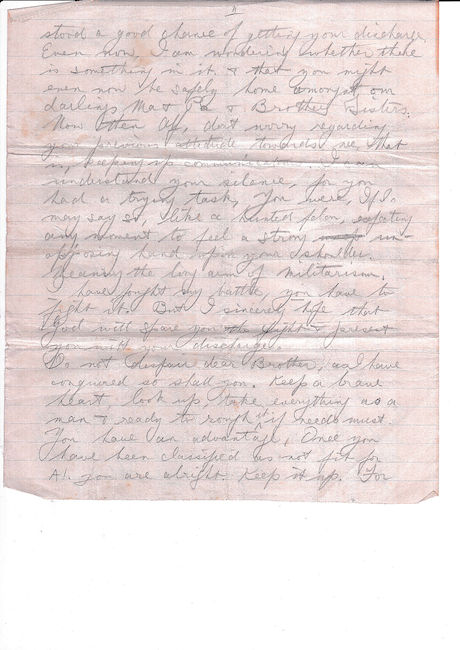 stood a good chance of getting your discharge.
Even now, I am wondering whether there
is something in it & that you might
even now be safely home amongst our
darlings Ma & Pa & Brother Sisters.
Now then Alf, don't worry regarding
your previous attitude towards me, that
is, keeping up communication. I can
understand your silence, for you
had a trying task, You were, If I
may say so, like a hunted felon, expecting
any moment to feel a strong un-
opposing hand upon your shoulder.
Meaning the long arm of militarism.
I have fought my battle, you have to
fight it. But I sincerely hope that
God will spare you the fight & present
you with your discharge.
Do not despair dear Brother, as I have
conquered so shall you. Keep a brave
heart look up take everything as a
man & ready to rough it if needs must.
You have an advantage, Once you
have been classified as not fit for
A1. you are alright. Keep it up. For